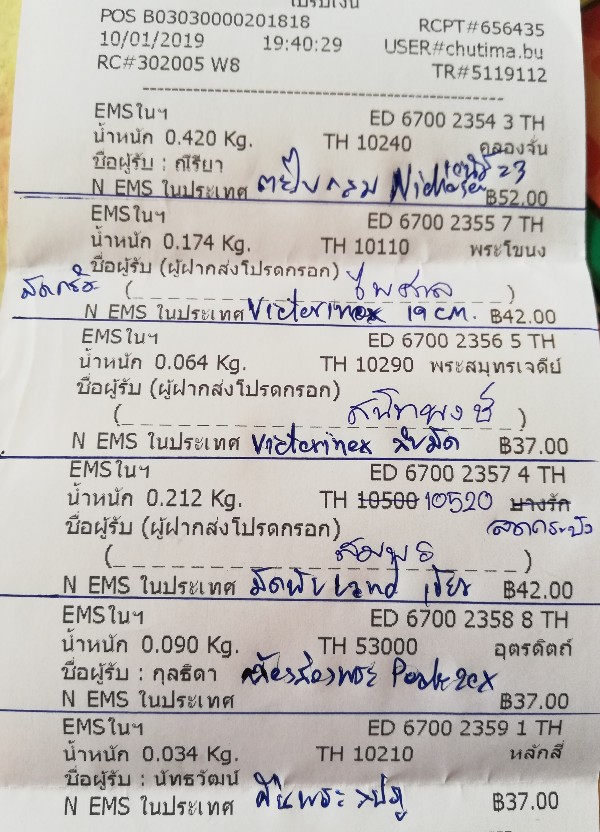 ใบรับเงิน
POS B03030000201818 RCPT#656435
10/01/2019 19:40:29 USER#chutima.bu
RC#302005 W8 TR#5119112
EMSในฯ ED 6700 2354 3 TH
น้ำหนัก 0.420 Kg. TH 10240 คลองจั่น
ชื่อผู้รับ : ณีรียา
N EMS ในประเทศ ฿52.00
EMSในฯ ED 6700 2355 7 TH
น้ำหนัก 0.174 Kg. TH 10110 พระโขนง
ชื่อผู้รับ (ผู้ฝากส่งโปรดกรอก)
(ไพศาล)
N EMS ในประเทศ Victorinox 19 cm. ฿42.00
EMSในฯ ED 6700 2356 5 TH
น้ำหนัก 0.064 Kg. TH 10290 พระสมุทรเจดีย์
ชื่อผู้รับ (ผู้ฝากส่งโปรดกรอก)
(สนิทพงษ์)
N EMS ในประเทศ Victorinox ลับมีด ฿37.00
EMSในฯ ED 6700 2357 4 TH
น้ำหนัก 0.212 Kg. TH 10500 10520 บางรัก
ชื่อผู้รับ (ผู้ฝากส่งโปรดกรอก) ลาดกระบัง
(สมพร)
N EMS ในประเทศ มีดพับ เขียว ฿42.00
EMSในฯ ED 6700 2358 8 TH
น้ำหนัก 0.090 Kg. TH 53000 อุตรดิตถ์
ชื่อผู้รับ : กุลธิดา กล้องส่องพระ
N EMS ในประเทศ ฿37.00
EMSในฯ ED 6700 2359 1 TH
น้ำหนัก 0.034 Kg. TH 10210 หลักสี่
ชื่อผู้รับ : นัทธวัฒน์
N EMS ในประเทศ ฿37.00